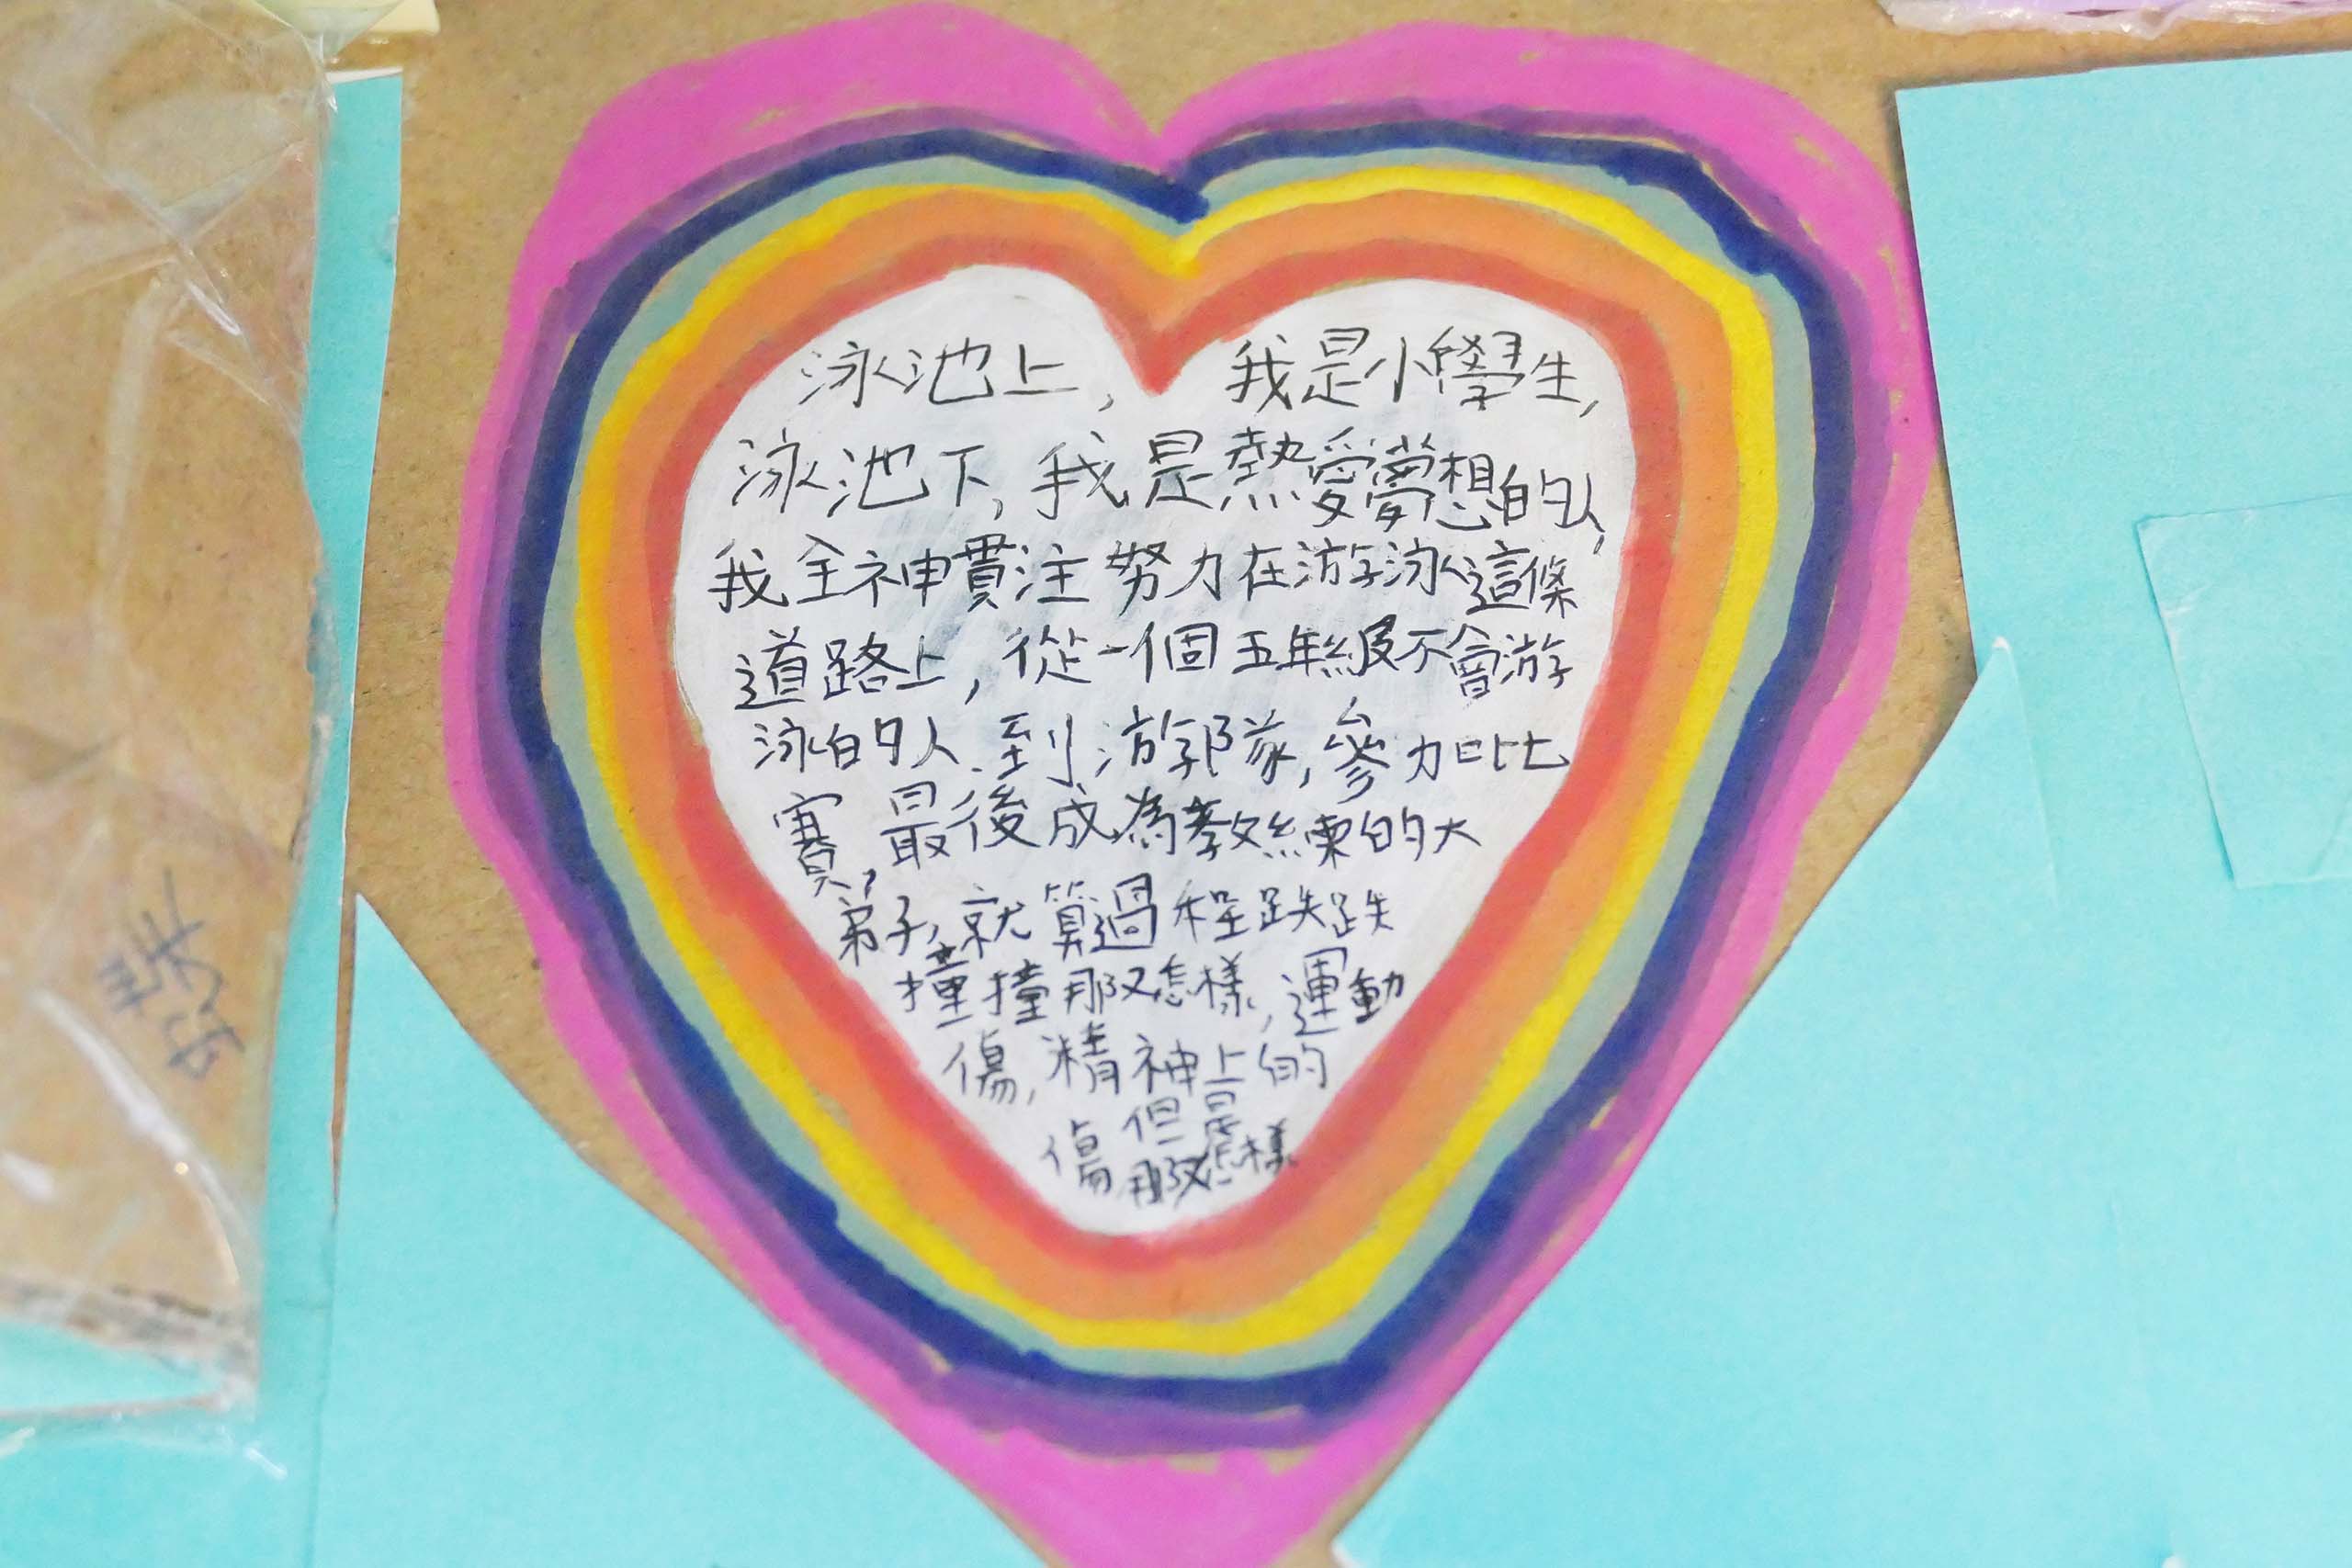 泳池上，我是小學生，
泳池下，我是熱愛夢想的人，
我全神貫注努力在游泳這條
道路上，從一個五年級不會游
泳的人到游泳隊，參加比
賽，最後成為教練的大
弟子，就算過程跌跌
撞撞那又怎樣，運動
傷，精神上的
傷但是
那又怎樣